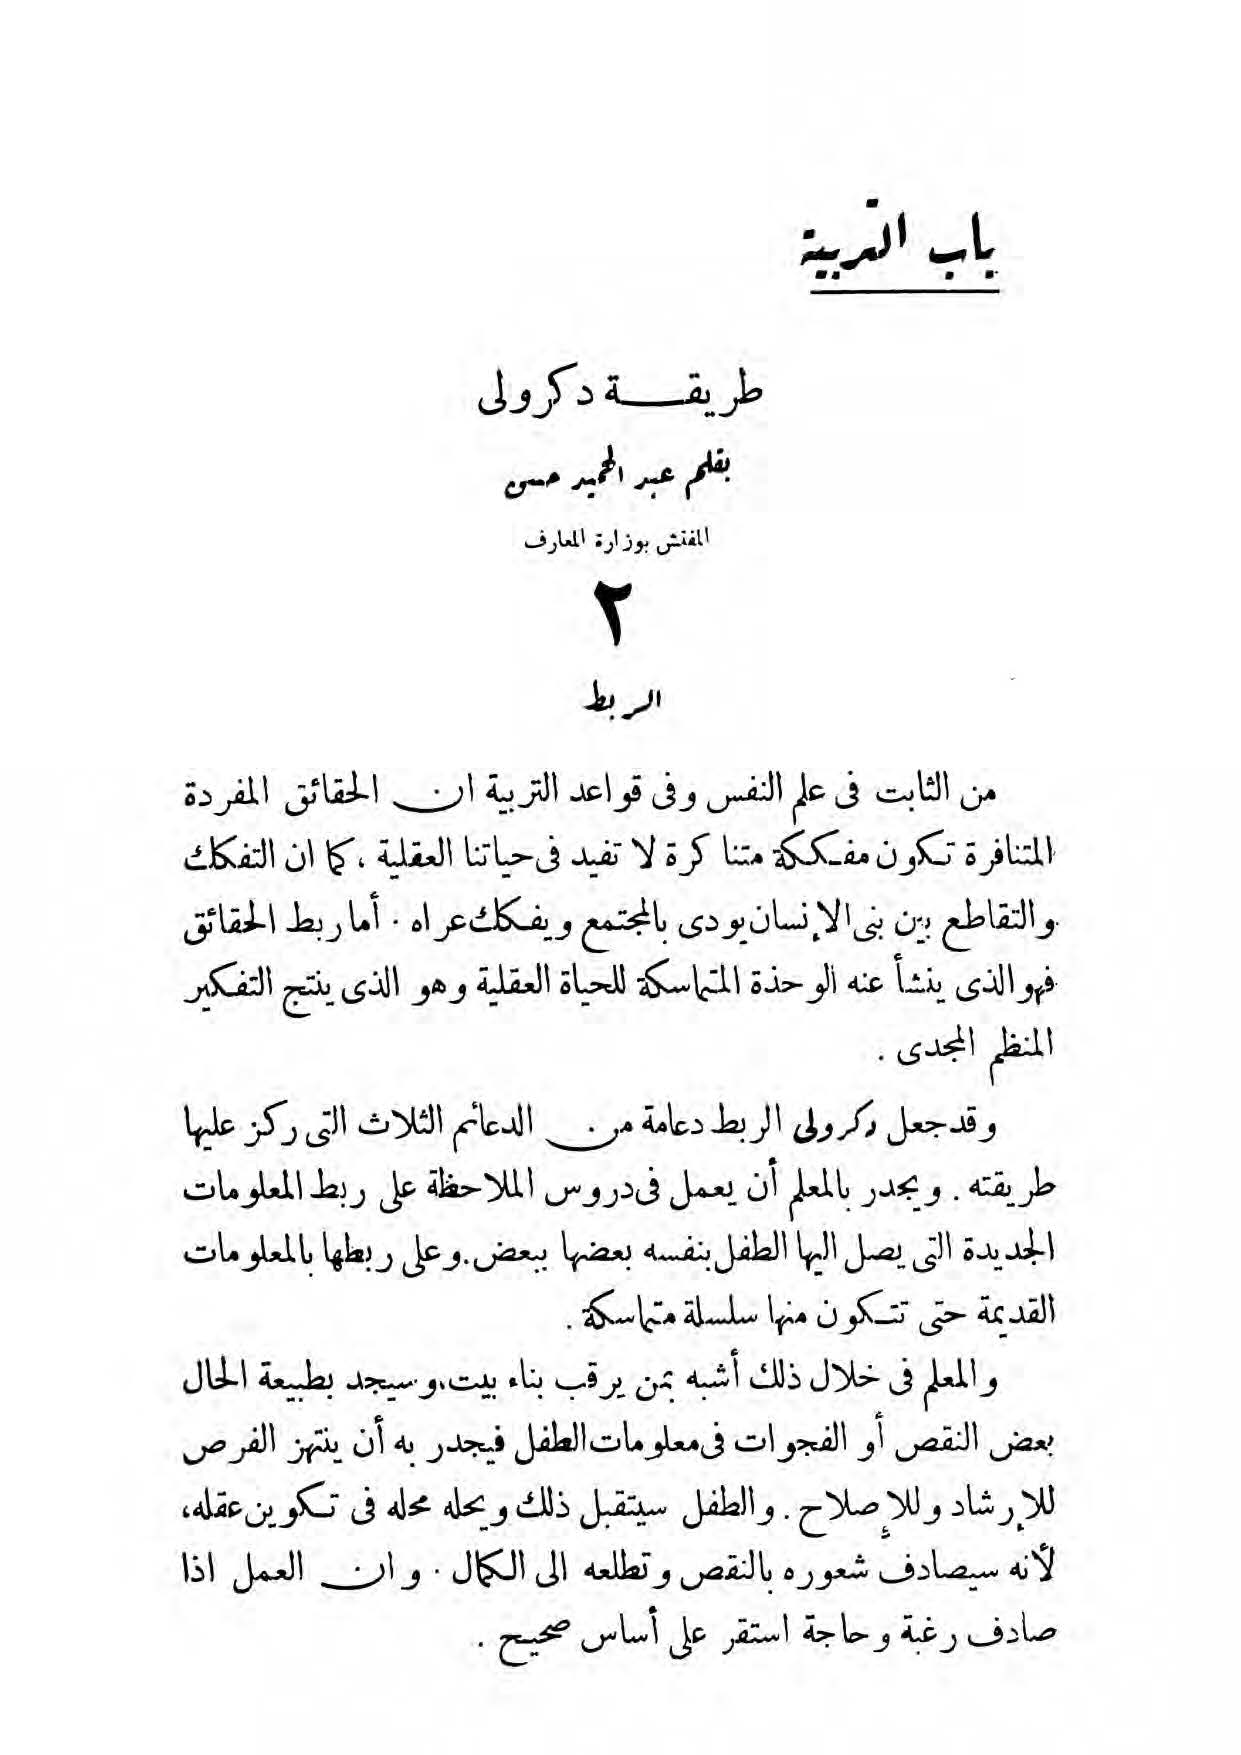 باب التربية
طريقة دكرولى
بقلم عبد الحميد حسن
المفتش بوزارة المعارف
٢
الربط
من الثابت فى علم النفس وفى قواعد التربية ان الحقائق المفردة
المتنافرة تكون مفككة متناكرة لا تفيد فى حياتنا العقلية ، كما ان التفكك
والتقاطع بين بنى الإنسان يودى بالمجتمع ويفكك عراه . أما ربط الحقائق
فهو الذى ينشأ عنه الوحدة المتماسكة للحياة العقلية وهو الذى ينتج التفكير
المنظم المجدى .
وقد جعل دكرولى الربط دعامة من الدعائم الثلاث التى ركز عليها
طريقته . ويجدر بالمعلم أن يعمل فى دروس الملاحظة على ربط المعلومات
الجديدة التى يصل اليها الطفل بنفسه بعضها ببعض . وعلى ربطها بالمعلومات
القديمة حتى تتكون منها سلسلة متماسكة .
والمعلم فى خلال ذلك أشبه بمن يرقب بناء بيت ، وسيجد بطبيعة الحال
بعض النقص أو الفجوات فى معلومات الطفل فيجدر به أن ينتهز الفرص
للإرشاد وللإصلاح . والطفل سيتقبل ذلك ويحله محله فى تكوين عقله ،
لأنه سيصادف شعوره بالنقص وتطلعه الى الكمال . وان العمل اذا
صادف رغبة وحاجة استقر على أساس صحيح .